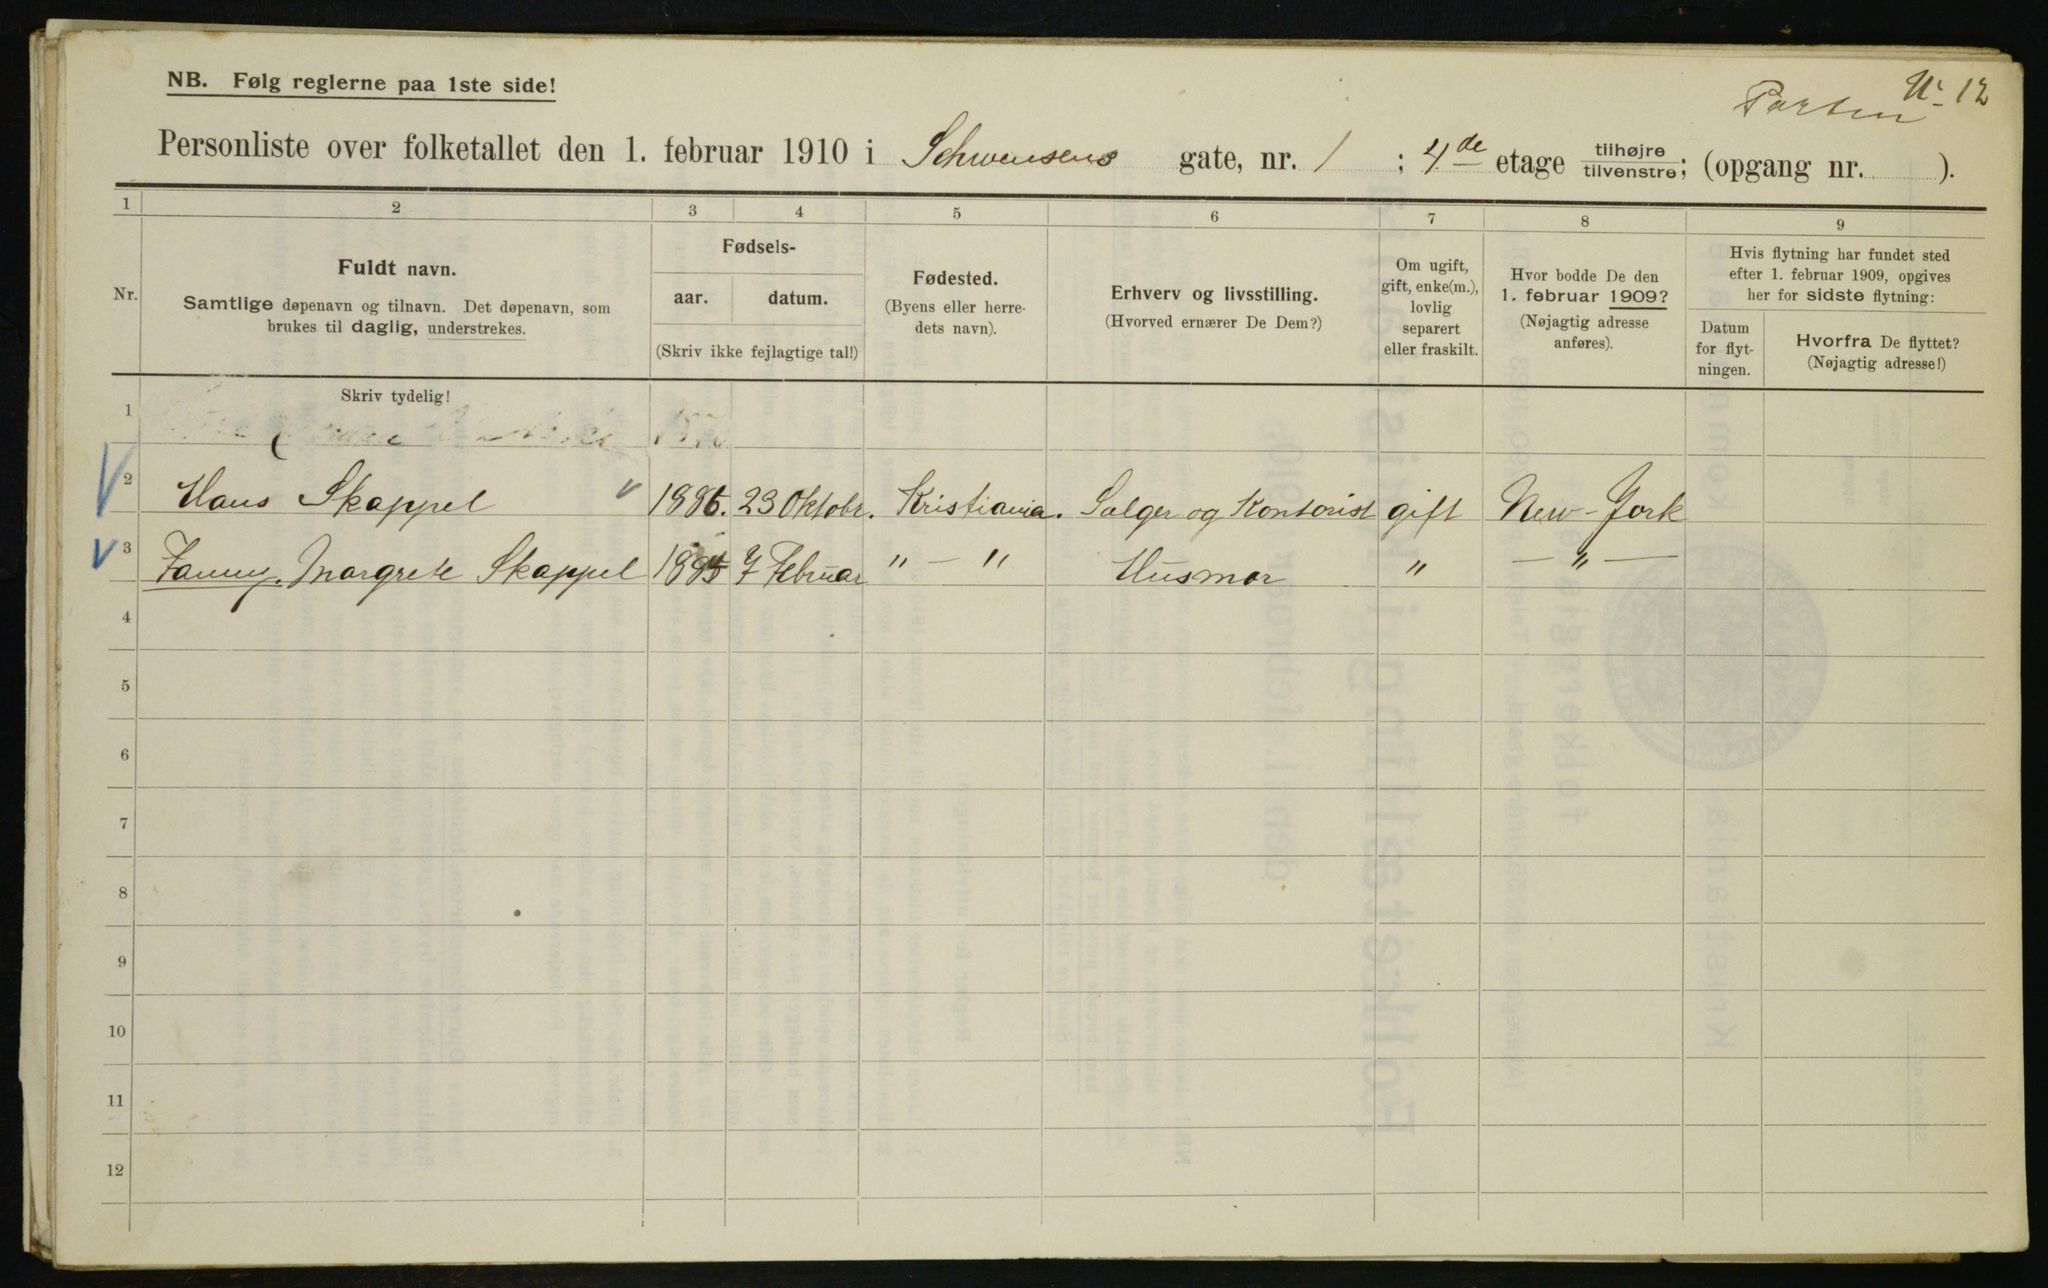 NB. Følg reglerne paa 1ste side!
No 12
Personliste over folketallet den 1. februar 1910 i Schwensens gate, nr. 1 ; 4de etage tilhøjre tilvenstre; (opgang nr. ).
1 2 3 4 5 6 7 8 9
Nr.
Fuldt navn.
Samtlige døpenavn og tilnavn. Det døpenavn, som
brukes til daglig, understrekes.
Fødsels-
aar. datum.
(Skriv ikke fejlagtige tal!)
Fødested.
(Byens eller herre-
dets navn).
Erhverv og livsstilling.
(Hvorved ernærer De Dem?)
Om ugift,
gift, enke(m.),
lovlig
separert
eller fraskilt.
Hvor bodde De den
1. februar 1909?
(Nøjagtig adresse
anføres).
Hvis flytning har fundet sted
efter 1. februar 1909, opgives
her for sidste flytning:
Datum
for flyt-
ningen.
Hvorfra De flyttet?
(Nøjagtig adresse!)
Skriv tydelig!
1
2 Hans Skappel 23 Oktobr. Kristiania. Sælger og Kontorist gift New-York
3 Fanny Margrete Skappel 7 Februar " — " Husmor " — " —
4
5
6
7
8
9
10
11
12